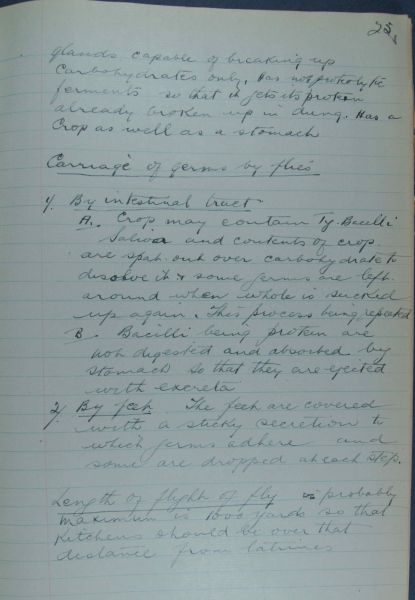 25
glands capable of breaking up
Carbohydrates only. Has not proteolytic
ferments so that it gets its protein
already broken up in dung. Has a
Crop as well as a stomach
Carriage of germs by flies
1/. By intestinal tract
A. Crop may contain Ty. Bacilli
Saliva and contents of crop
are spat out over carbohydrate to
dissolve it & some germs are left
around when whole is sucked
up again. This process being repeated
B. Bacilli being protein are
not digested and absorbed by
stomach so that they are ejected
with excreta
2/. By feet. The feet are covered
with a sticky secretion to
which germs adhere and
some are dropped at each stop.
Length of flight of fly is probably
Maximum is 1000 yards so that
Kitchens should be over that
distance from latrines